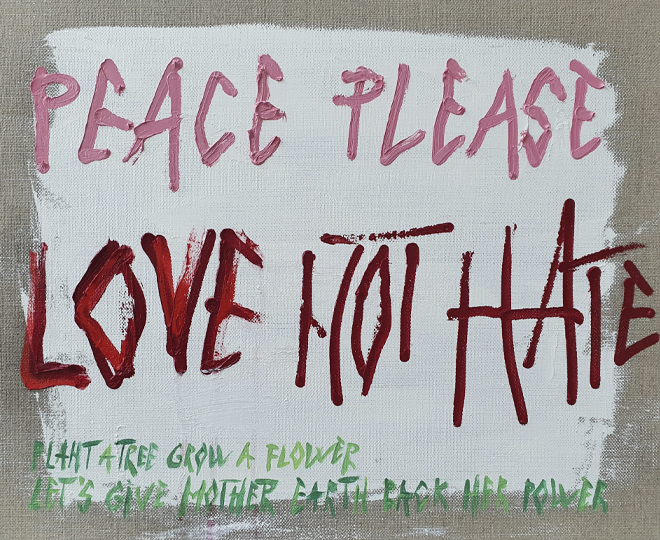 PEACE PLEASE
LOVE NOT HATE
PLANT A TREE GROW A FLOWER
LET'S GIVE MOTHER EARTH BACK HER POWER